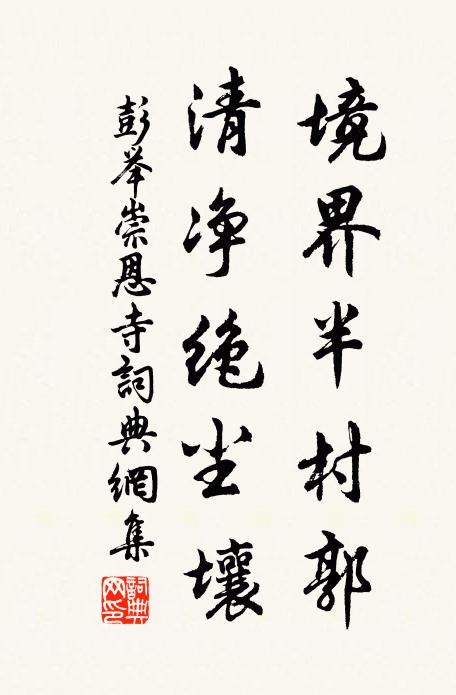 境界半村郭
清净绝尘壤
彭举崇恩寺詞典網集
詞典网印